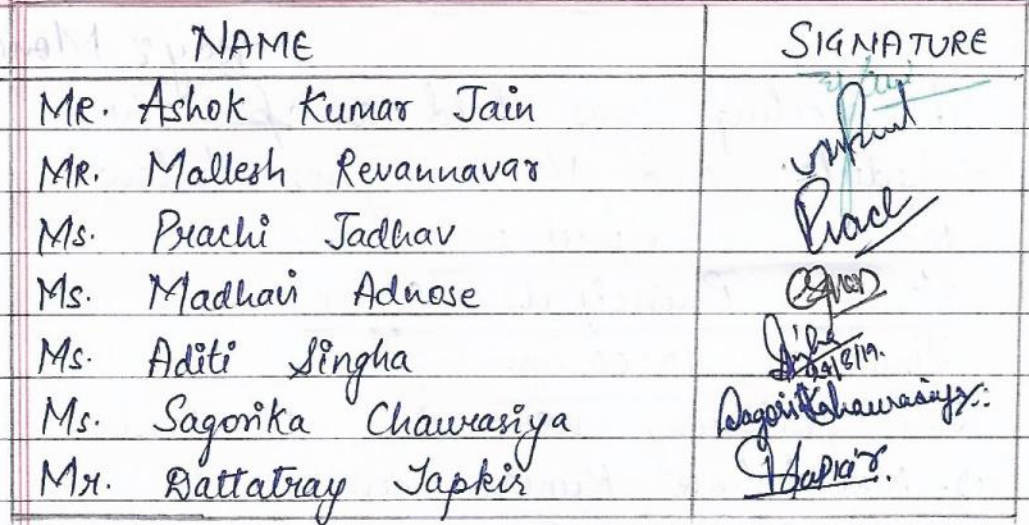 NAME SIGNATURE
MR. Ashok Kumar Jain
MR. Mallesh Revannavar
Ms. Prachi Jadhav Prach
Ms. Madhavi Adnose
Ms. Aditi Singha
Ms. Sagorika Chaurasiya SagorikaChaurasiya
Mr. Dattatray Japkir Japkir.